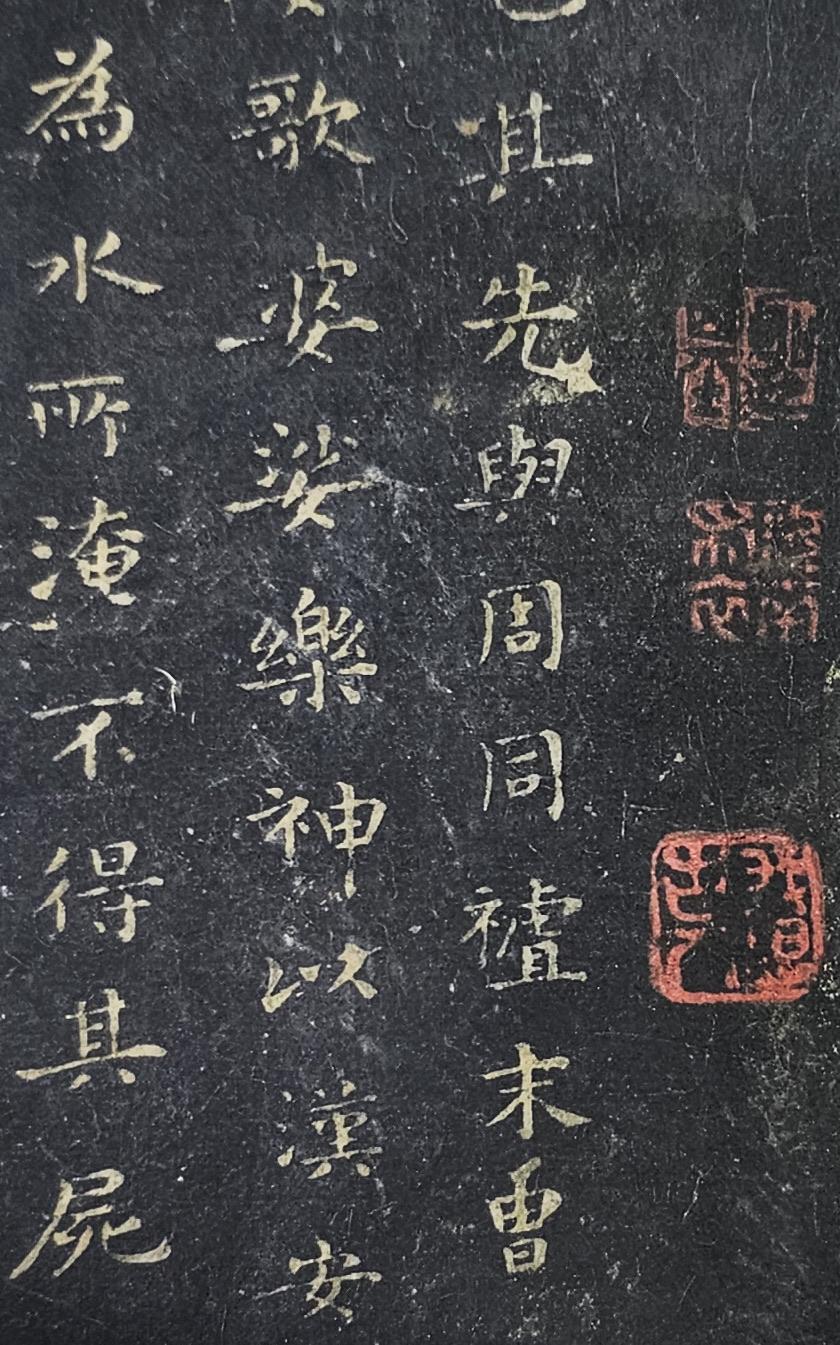 其先與周同祖末冑
歌婆娑樂神以漢安
為水所淹不得其屍